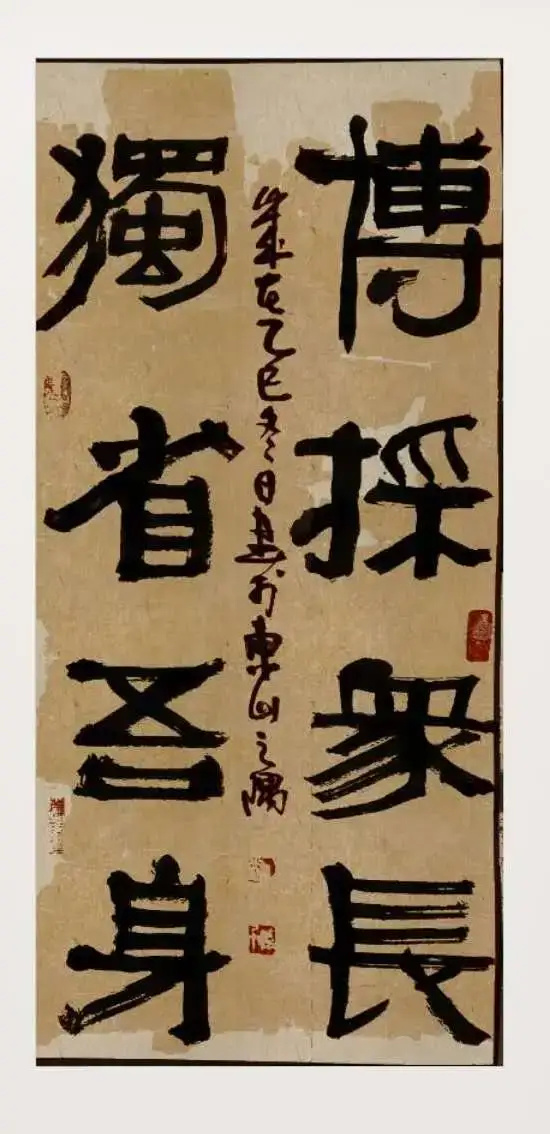 博採衆長
獨省吾身
歲在乙巳冬日書於東山之隅